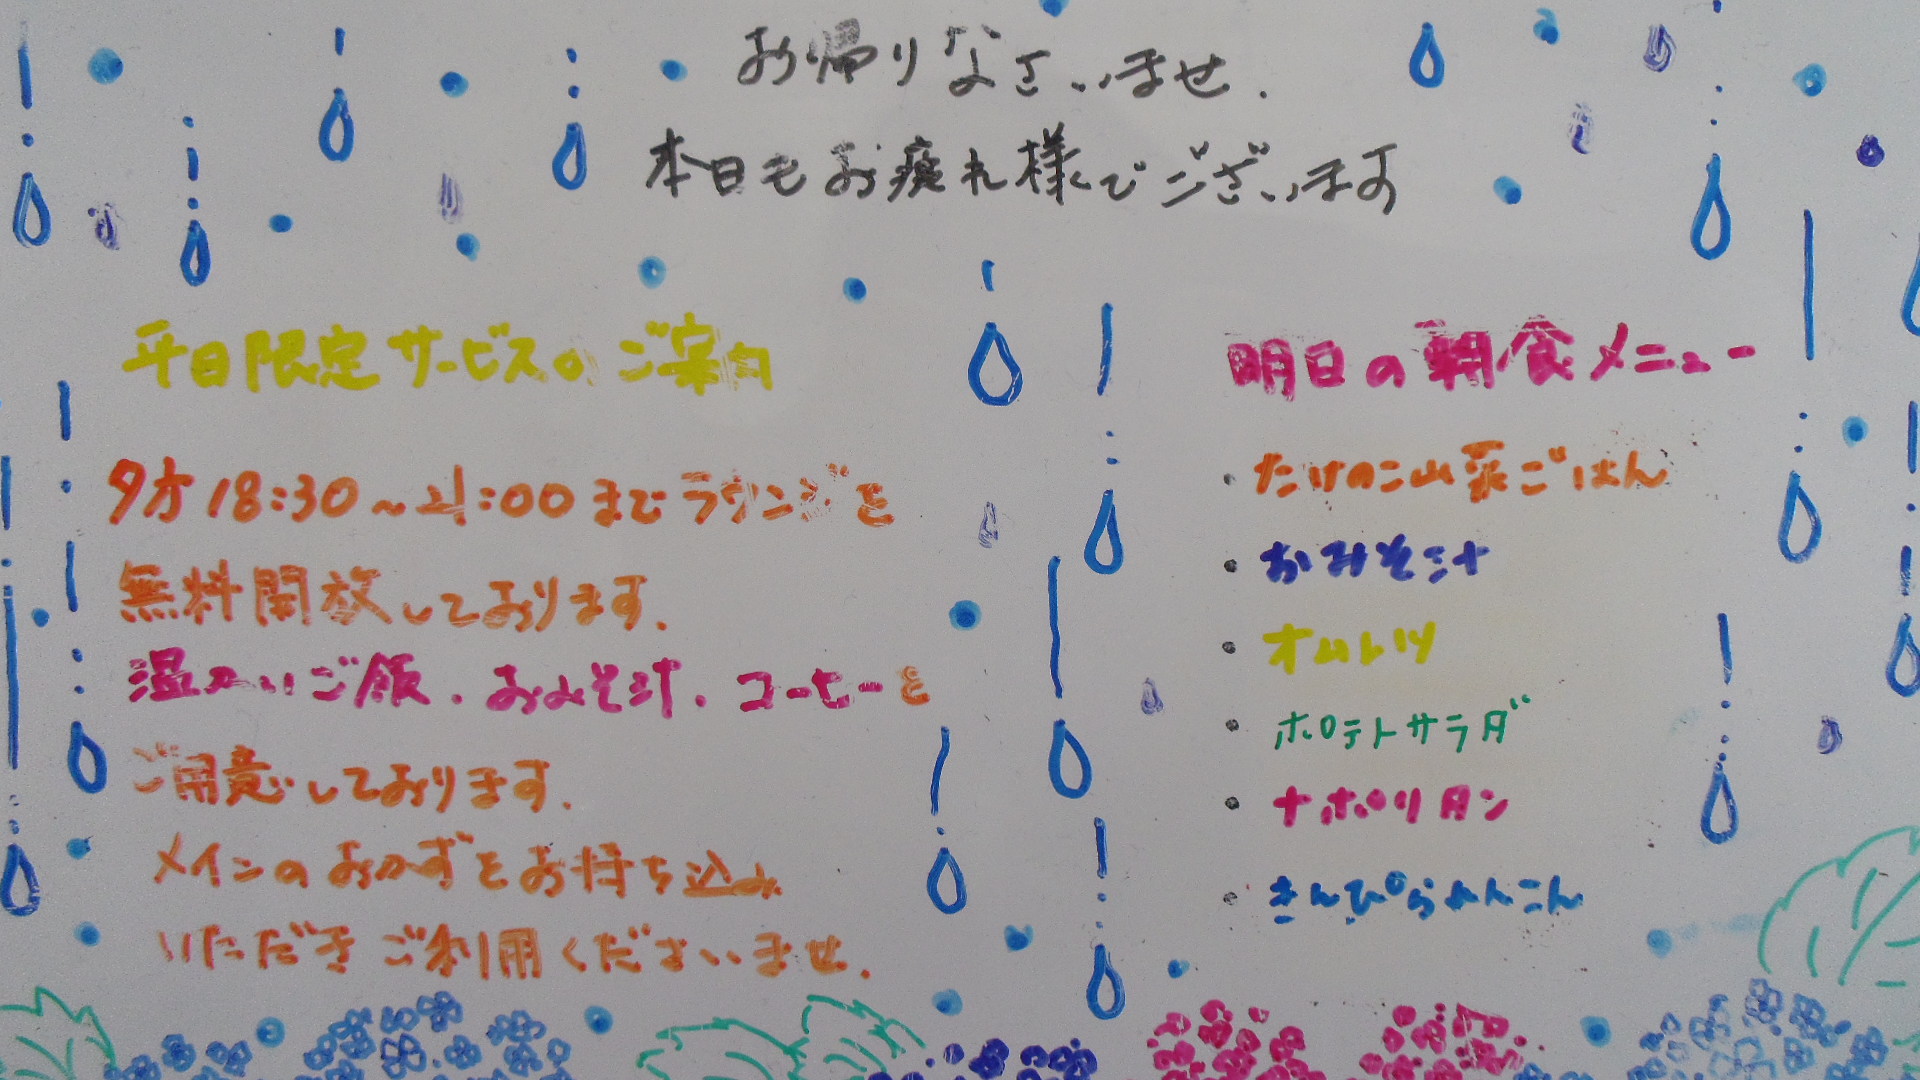 お帰りなさいませ.
本日もお疲れ様でございます
平日限定サービスのご案内
夕方18:30~21:00までラウンジを
無料開放しております.
温かいご飯.おみそ汁.コーヒーを
ご用意しております.
メインのおかずをお持ち込み
いただきご利用くださいませ.
明日の朝食メニュー
・たけのこ山菜ごはん
・おみそ汁
・オムレツ
・ポテトサラダ
・ナポリタン
・きんぴられんこん